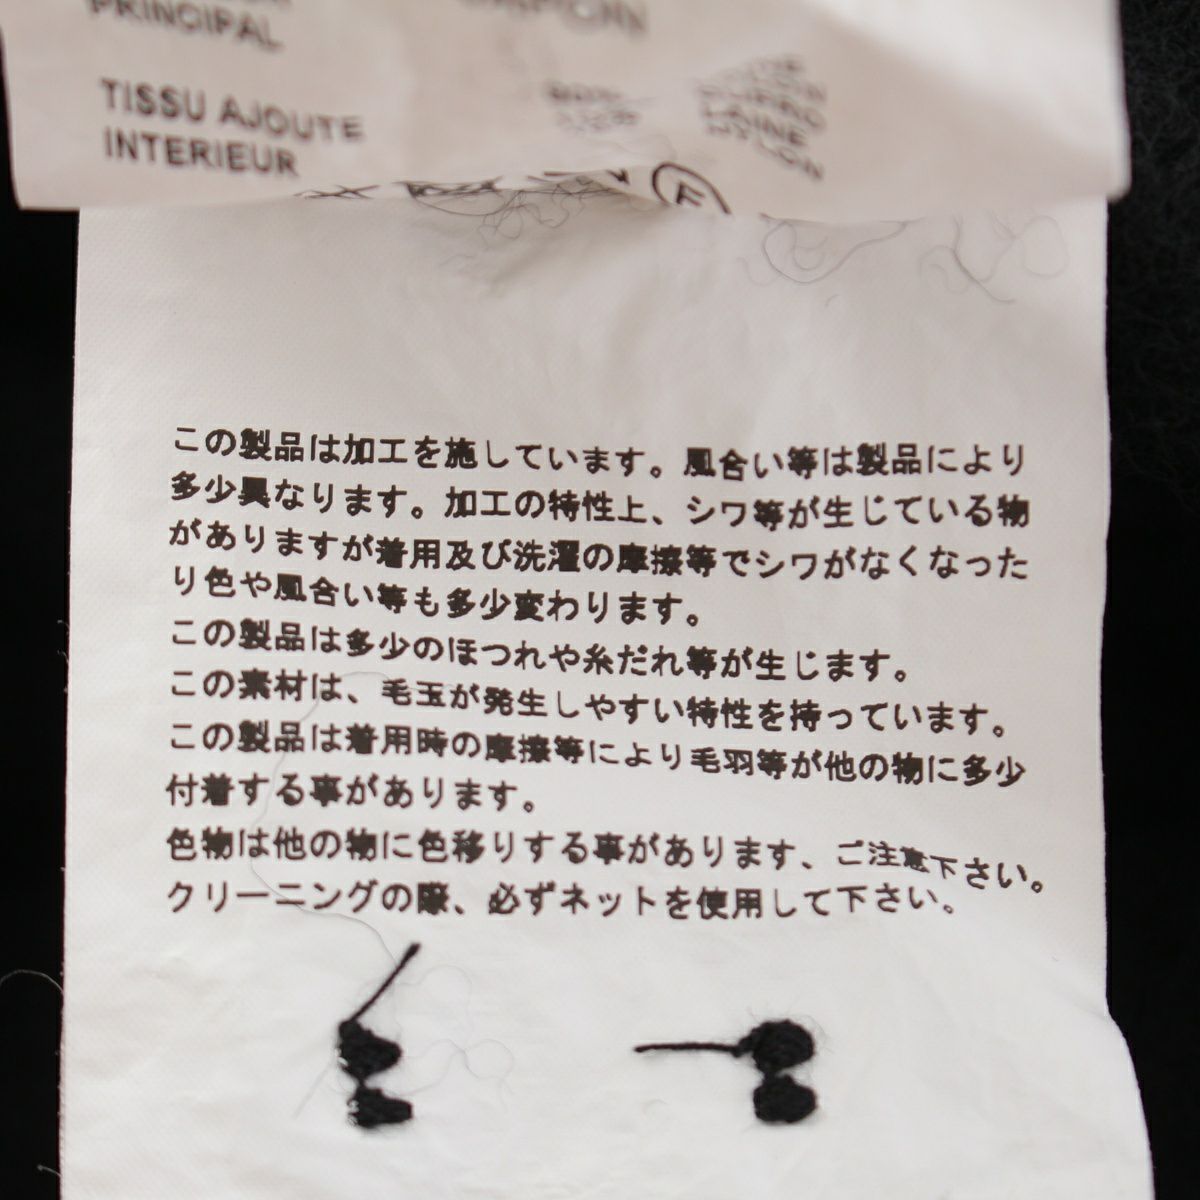 PRINCIPAL
TISSU AJOUTE
INTERIEUR
この製品は加工を施しています。風合い等は製品により
多少異なります。加工の特性上、シワ等が生じている物
がありますが着用及び洗濯の摩擦等でシワがなくなった
り色や風合い等も多少変わります。
この製品は多少のほつれや糸だれ等が生じます。
この素材は、毛玉が発生しやすい特性を持っています。
この製品は着用時の摩擦等により毛羽等が他の物に多少
付着する事があります。
色物は他の物に色移りする事があります、ご注意下さい。
クリーニングの際、必ずネットを使用して下さい。